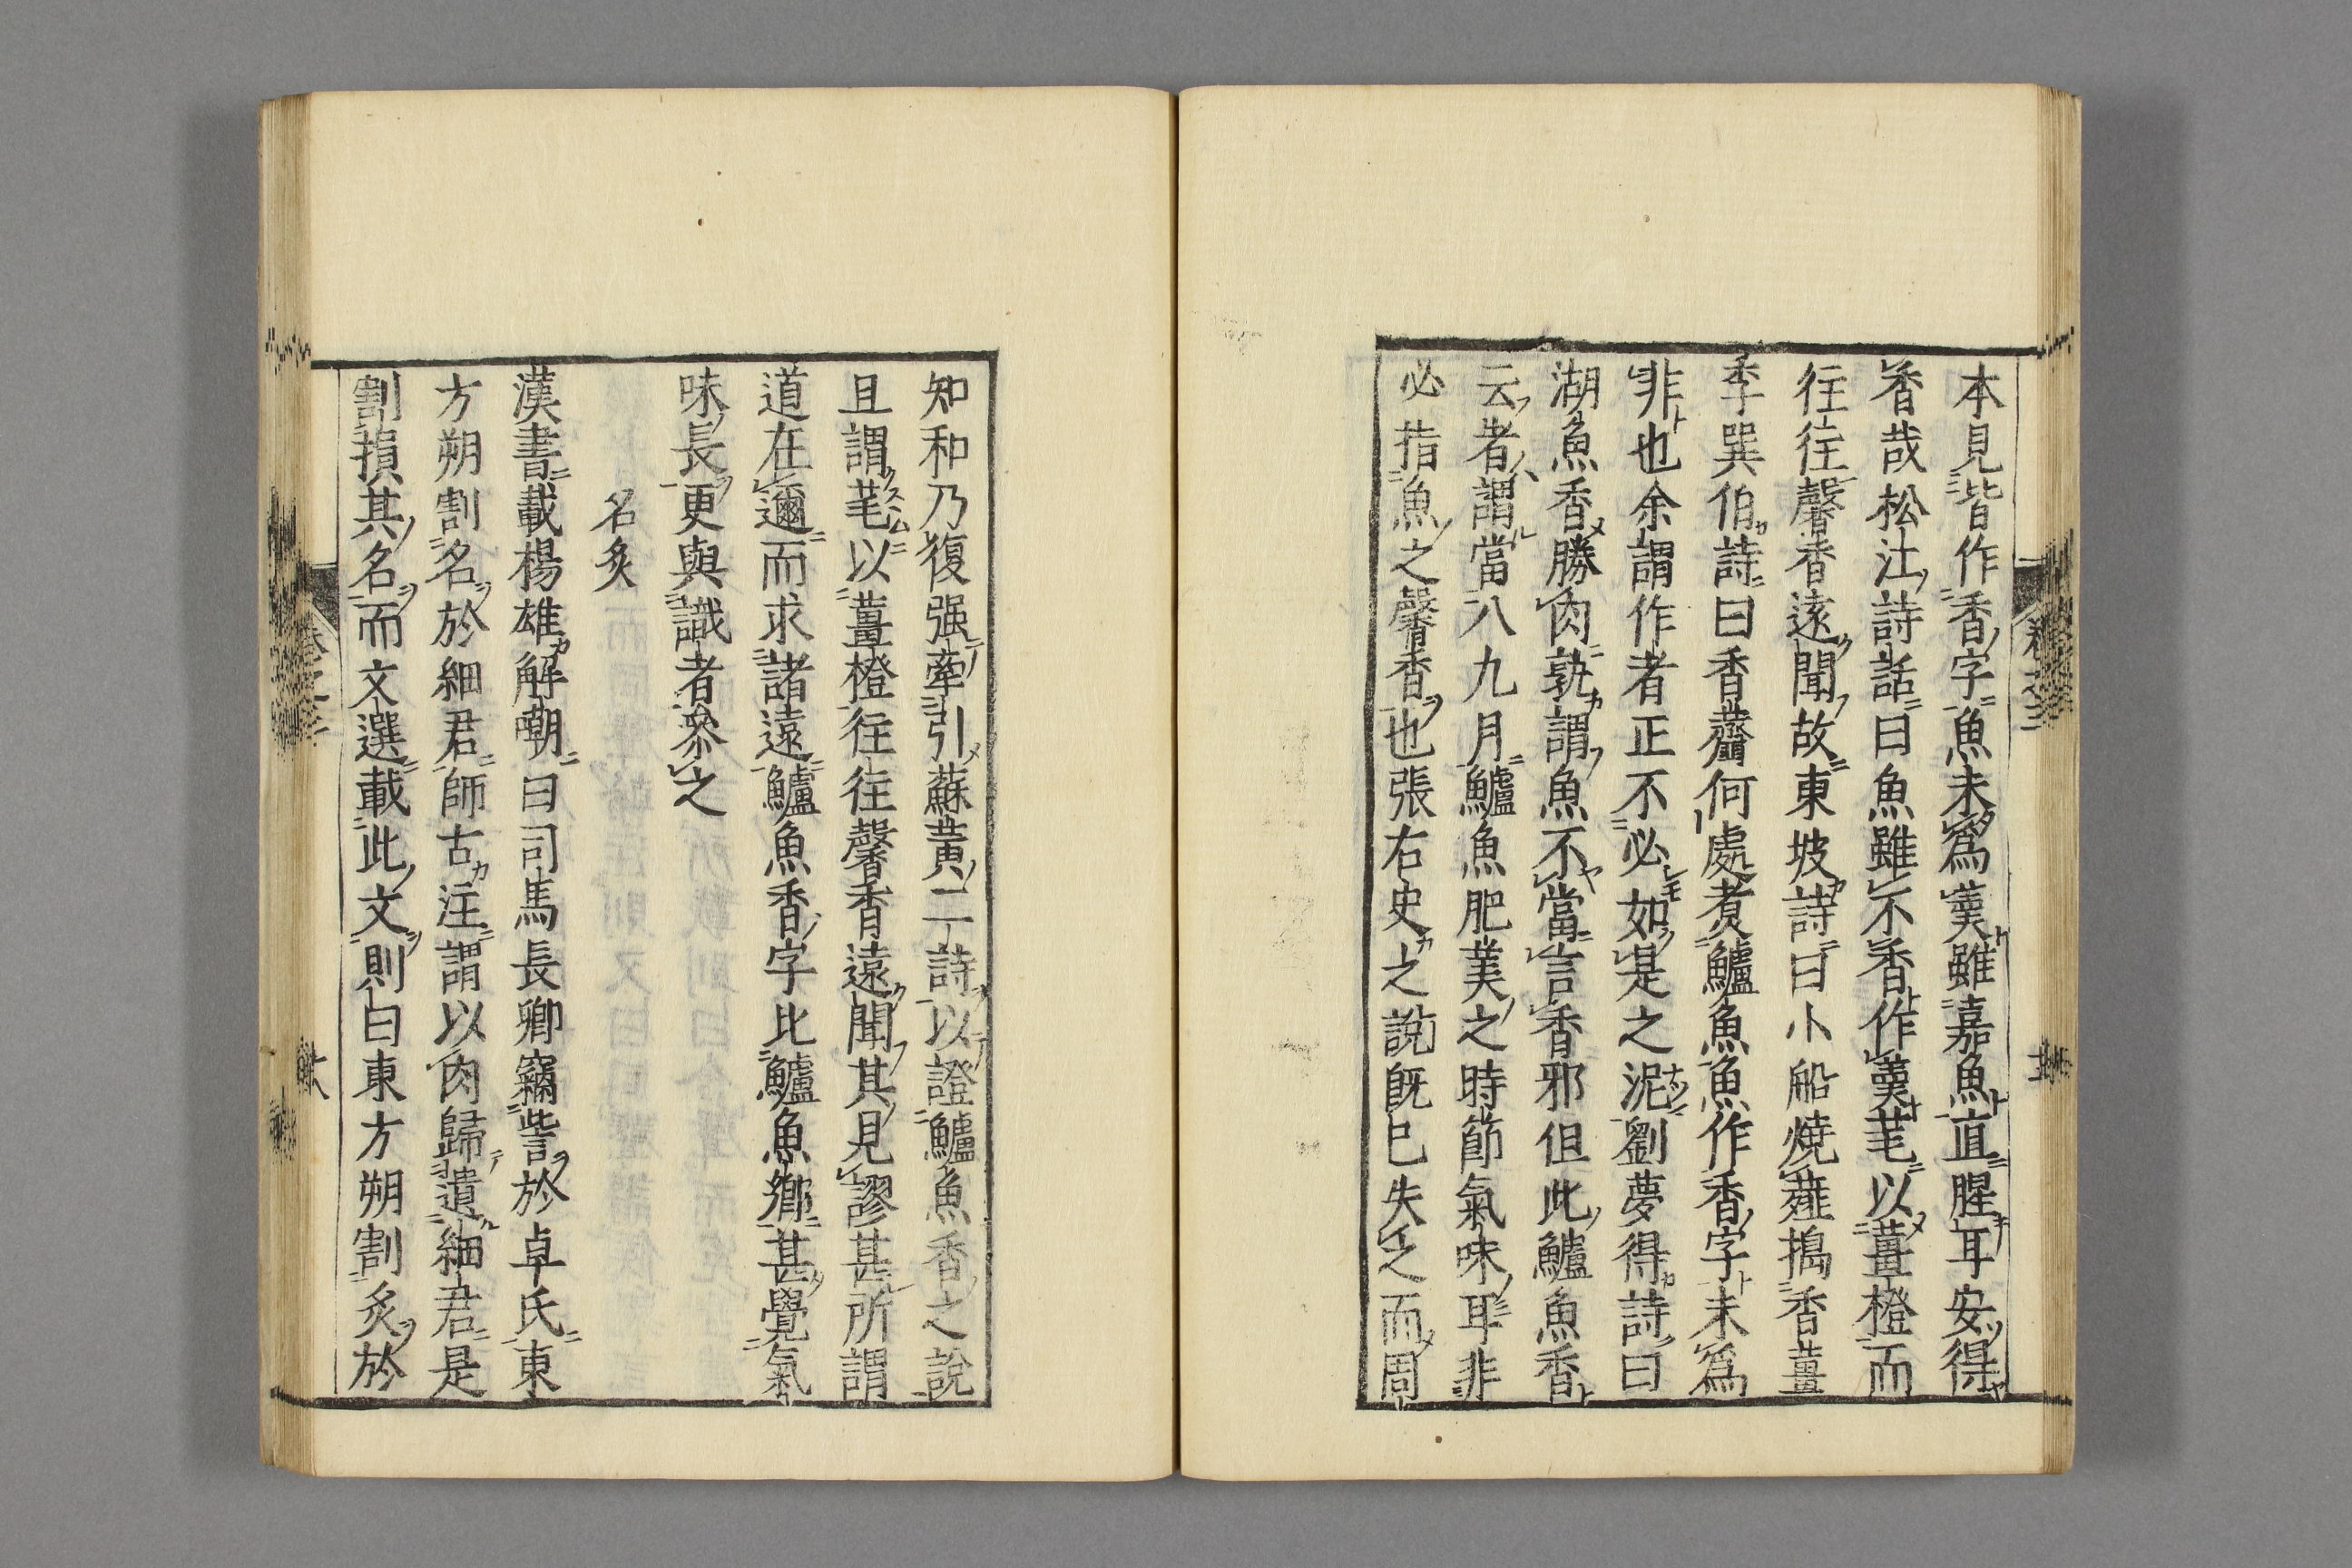 本見皆作香字魚未為羹雖嘉魚直腥耳安得
香哉松江詩話曰魚雖不香作羹芼以薑橙而
往往馨香遠聞故東坡詩曰小船燒薤搗香薑
季巽伯詩曰香虀何處煑鱸魚魚作香字未為
非也余謂作者正不必如是之泥劉夢得詩曰
湖魚香勝肉孰謂魚不當言香邪但此鱸魚香
云者謂當八九月鱸魚肥美之時節氣味耳非
必指魚之馨香也張右史之說既已失之而周
知和乃復强牽引蘇黄二詩以證鱸魚香之說
且謂芼以薑橙往往馨香遠聞其見謬甚所謂
道在邇而求諸遠鱸魚香字比鱸魚鄉甚覺氣
味長更與識者叅之
名炙
漢書載楊雄解嘲曰司馬長卿竊訾於卓氏東
方朔割名於細君師古注謂以肉歸遺細君是
割損其名而文選載此文則曰東方朔割炙於